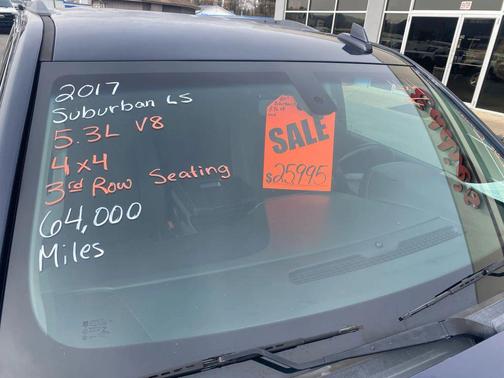 2017
Suburban LS
5.3L V8
4x4
3rd Row Seating
64,000
Miles
SALE
$25,995